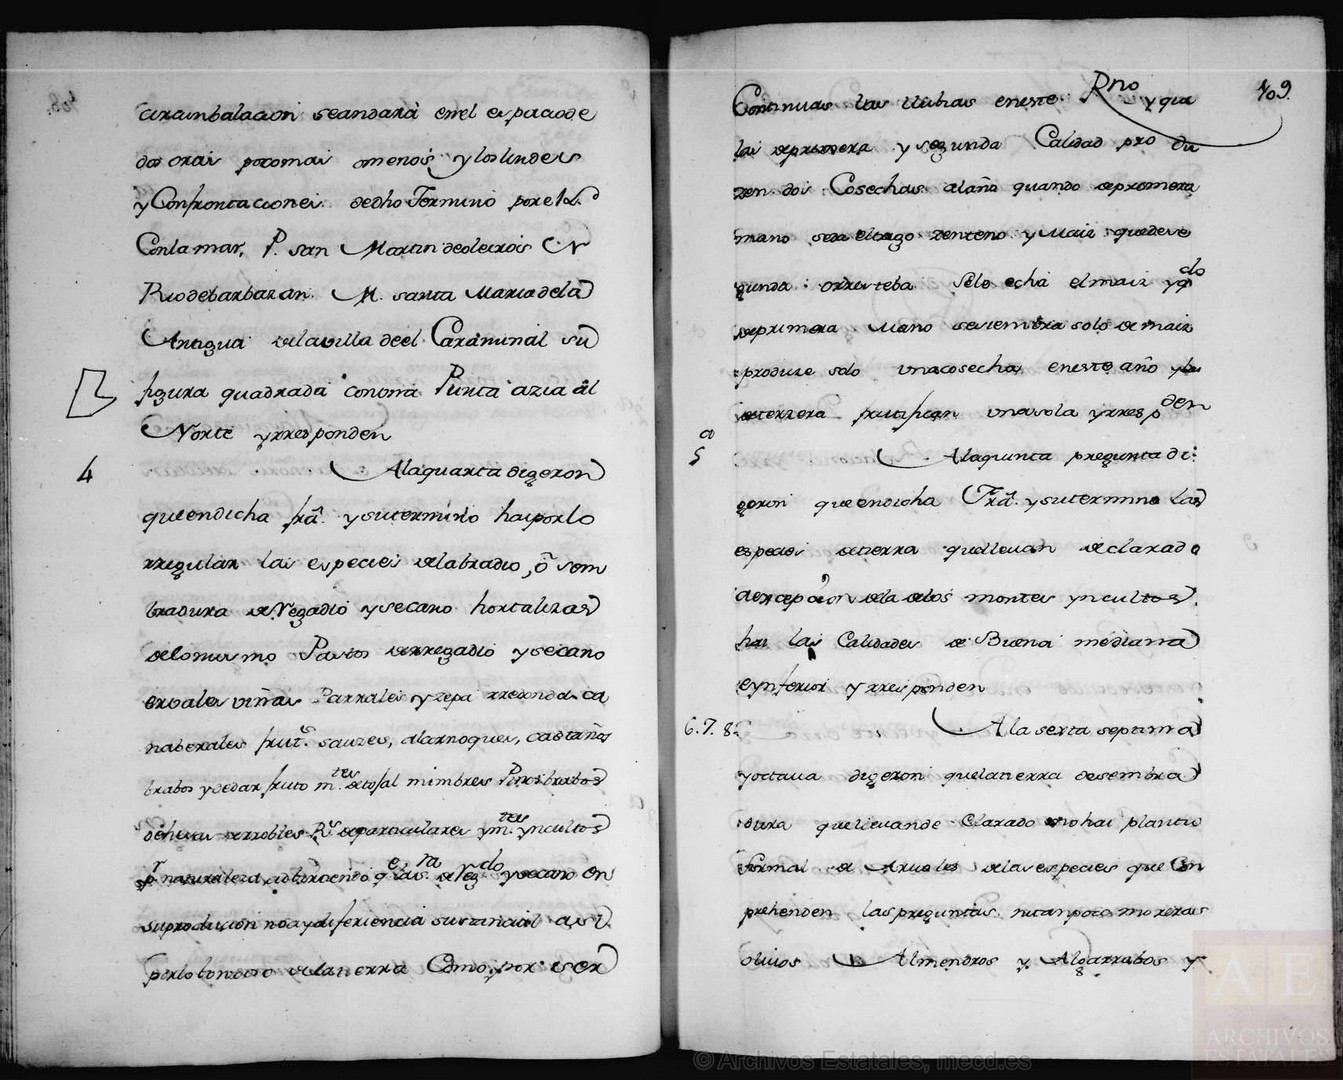 circunbalacion seandarà enel espaciode
dos oras pocomas omenos y loslinderos
y Confrontaciones dedho Termino por el L.
Conlamar, P. san Martin deoleiros N
Rio de barbazan M. santa Mariadela
Antigua delavilla deel Caraminal su
figura quadrada conorra Punta azia al
Norte yrresponden
4 Alaquarta digeron
queendicha frã. ysutermino haiporlo
rregular las especies delabradio, ô sem
bradura de Regadio ysecano hortalizas
delomismo Pastos derregadio ysecano
eroales viñas Parrales y zepa rredonda ca
naberales frut.s sauzes, alarnoques, castaños
brabos ydedar fruto m.tes detojal mimbres Pinosbrabos
dehesa derrobles R.s departiculares ym.tes yncultos
pr naturaleza, adbirtiendo q.e las de Reg.do ysecano en
suproducion noaydiferiencia sustancial asi
porlo de latierra Como por ser
409.
Continuas las llubias eneste Rno yque
las deprimera y segunda Calidad produ
zen dos Cosechas alaño quando deprimera
mano sea eltrigo zenteno y Maiz quedese
gunda orresteba sele echa elmaiz yq.do
deprimera Mano sesiembra solo demaiz
produze solo unacosecha eneste año ylas
deterzera frutifican unasola yrrespden
5a Alaquinta pregunta di:
geron queendicha Frã. ysutermino las
especies detierra quellevan declarado
aexcepcion dela delos montes yncultos,
hai las Calidades de Buena mediana
eynferior yrresponden
6. 7. 8. Ala sexta septima
yoctava digeron quelatierra desembra
dura quellevande Clarado nohai plantio
formal de Arvoles delasespecies que Con
prehenden laspreguntas nitanpoco moreras
olivos Almendros y Algarrabos y
© Archivos Estatales, mecd.es
AE
ARCHIVOS
ESTATALES